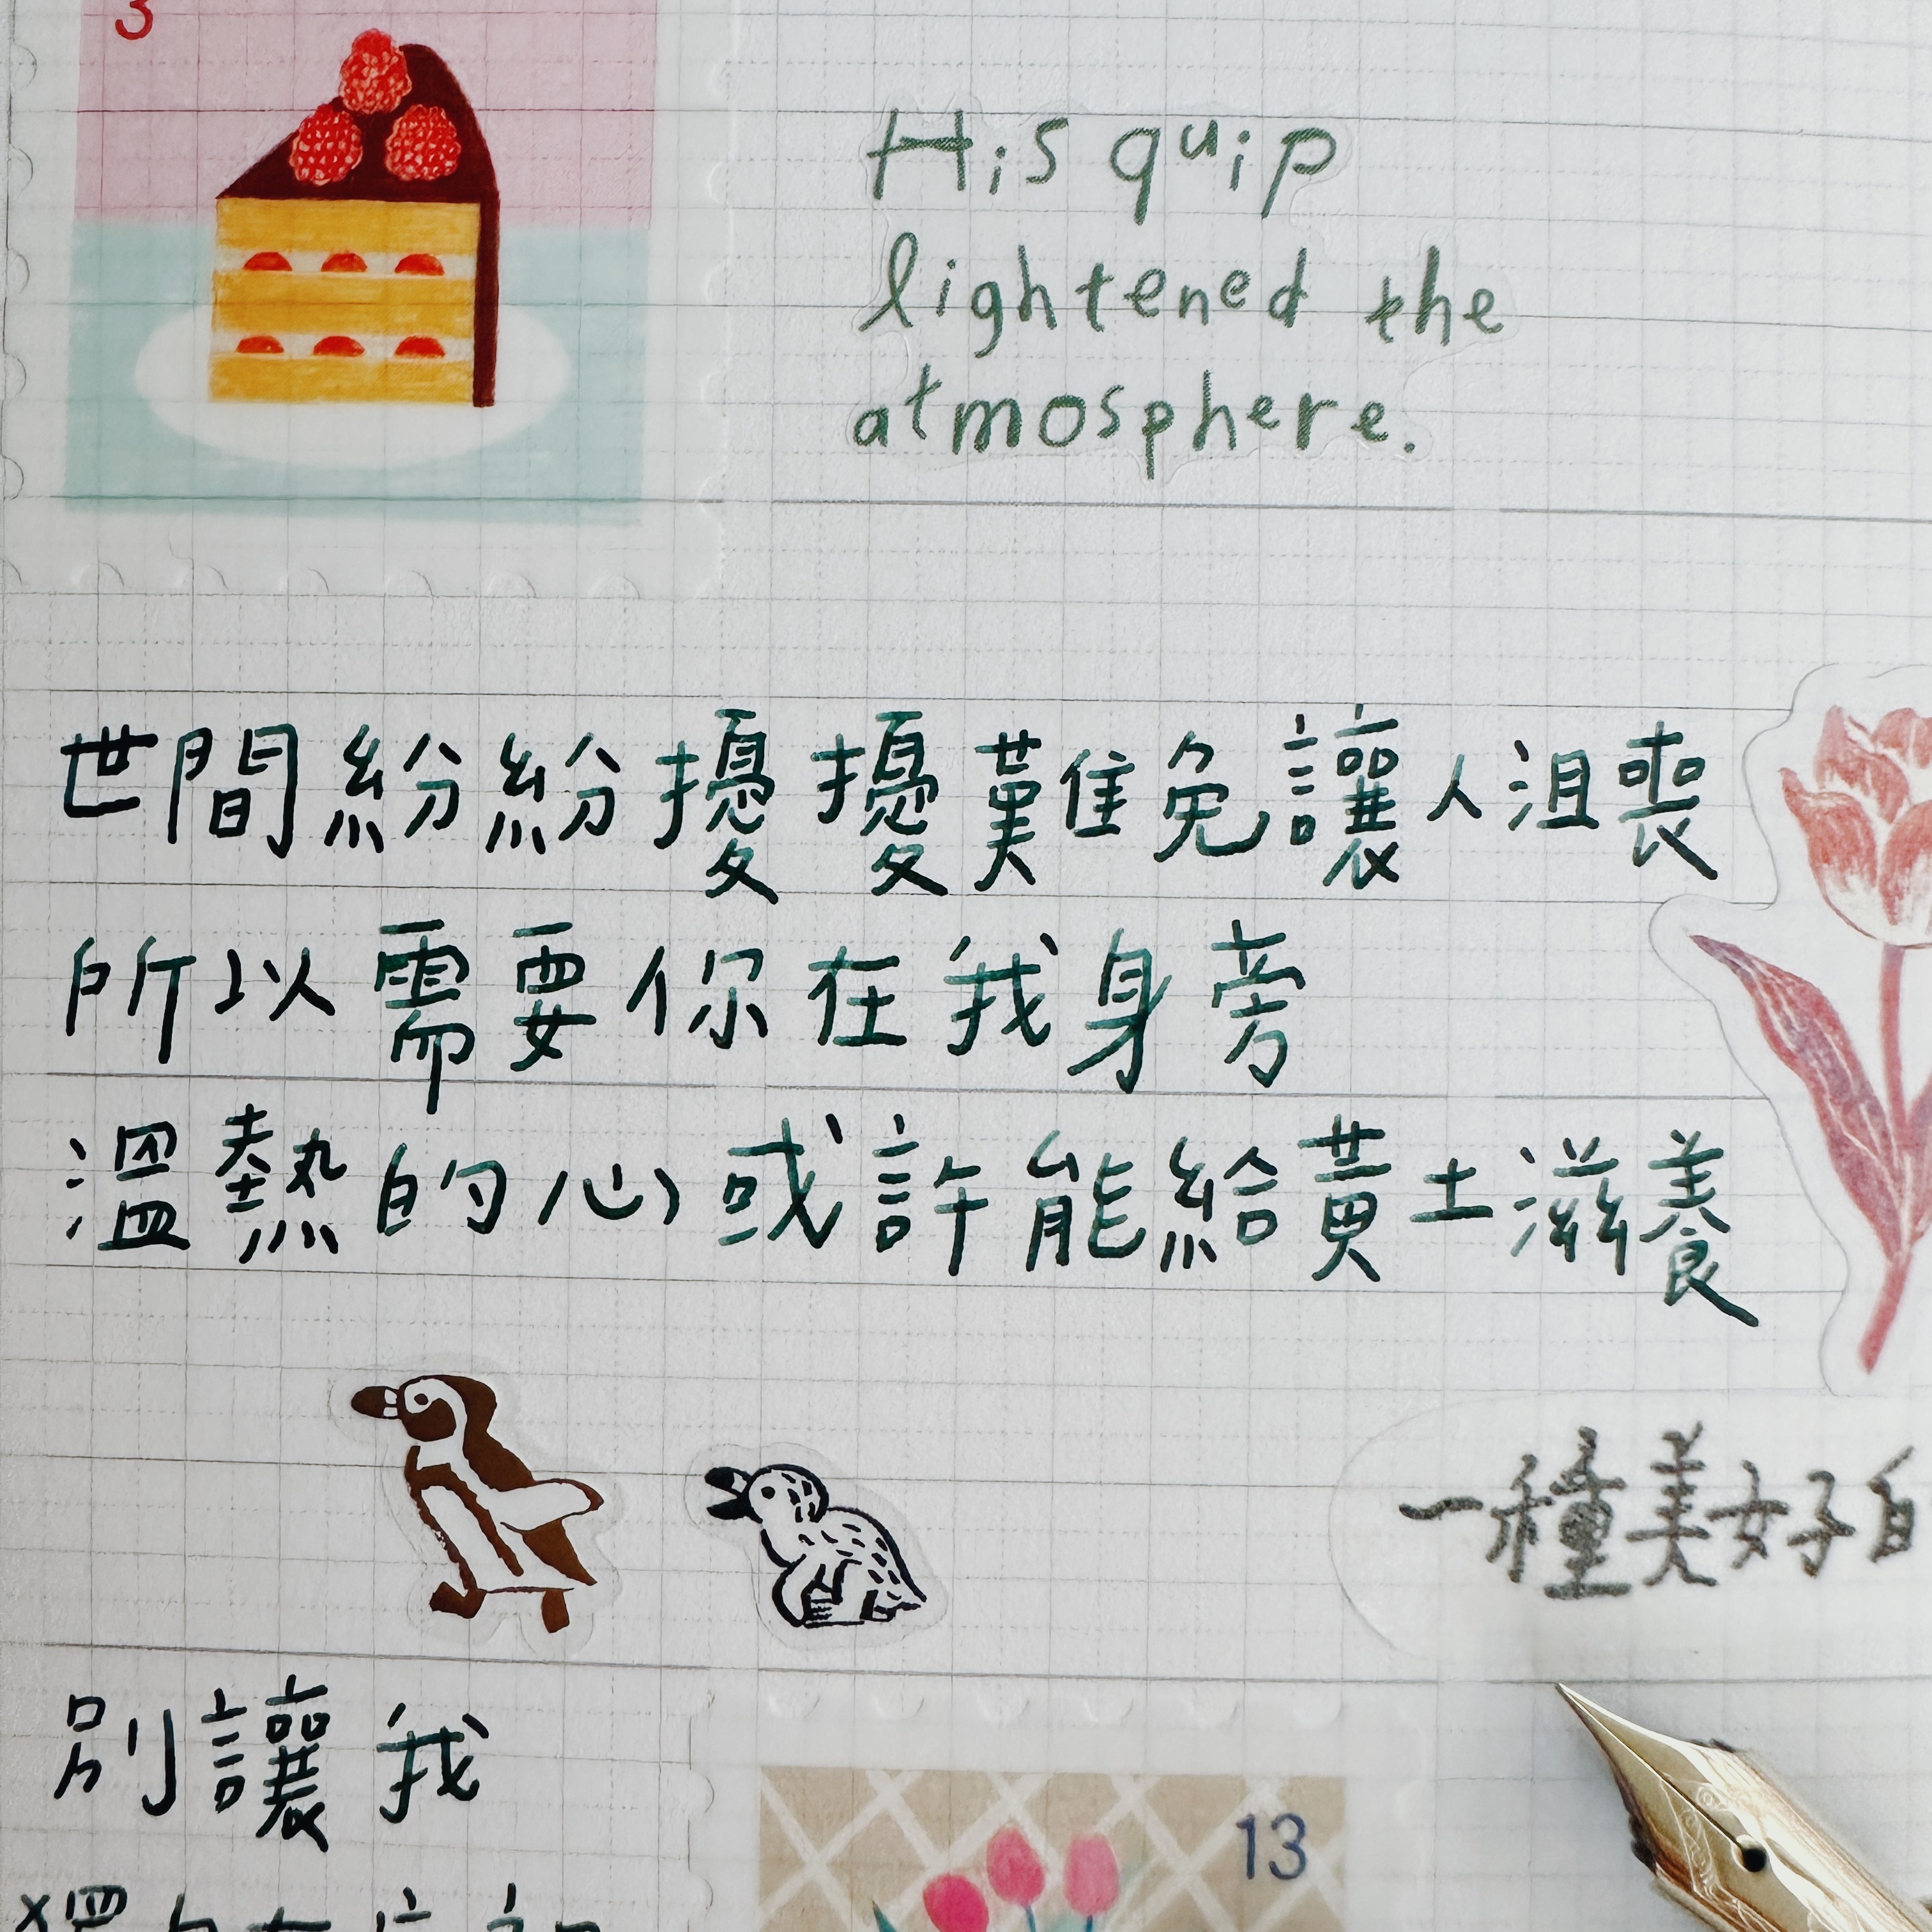 3
His quip
lightened the
atmosphere.
世間紛紛擾擾難免讓人沮喪
所以需要你在我身旁
溫熱的心或許能給黃土滋養
一種美好
別讓我
13